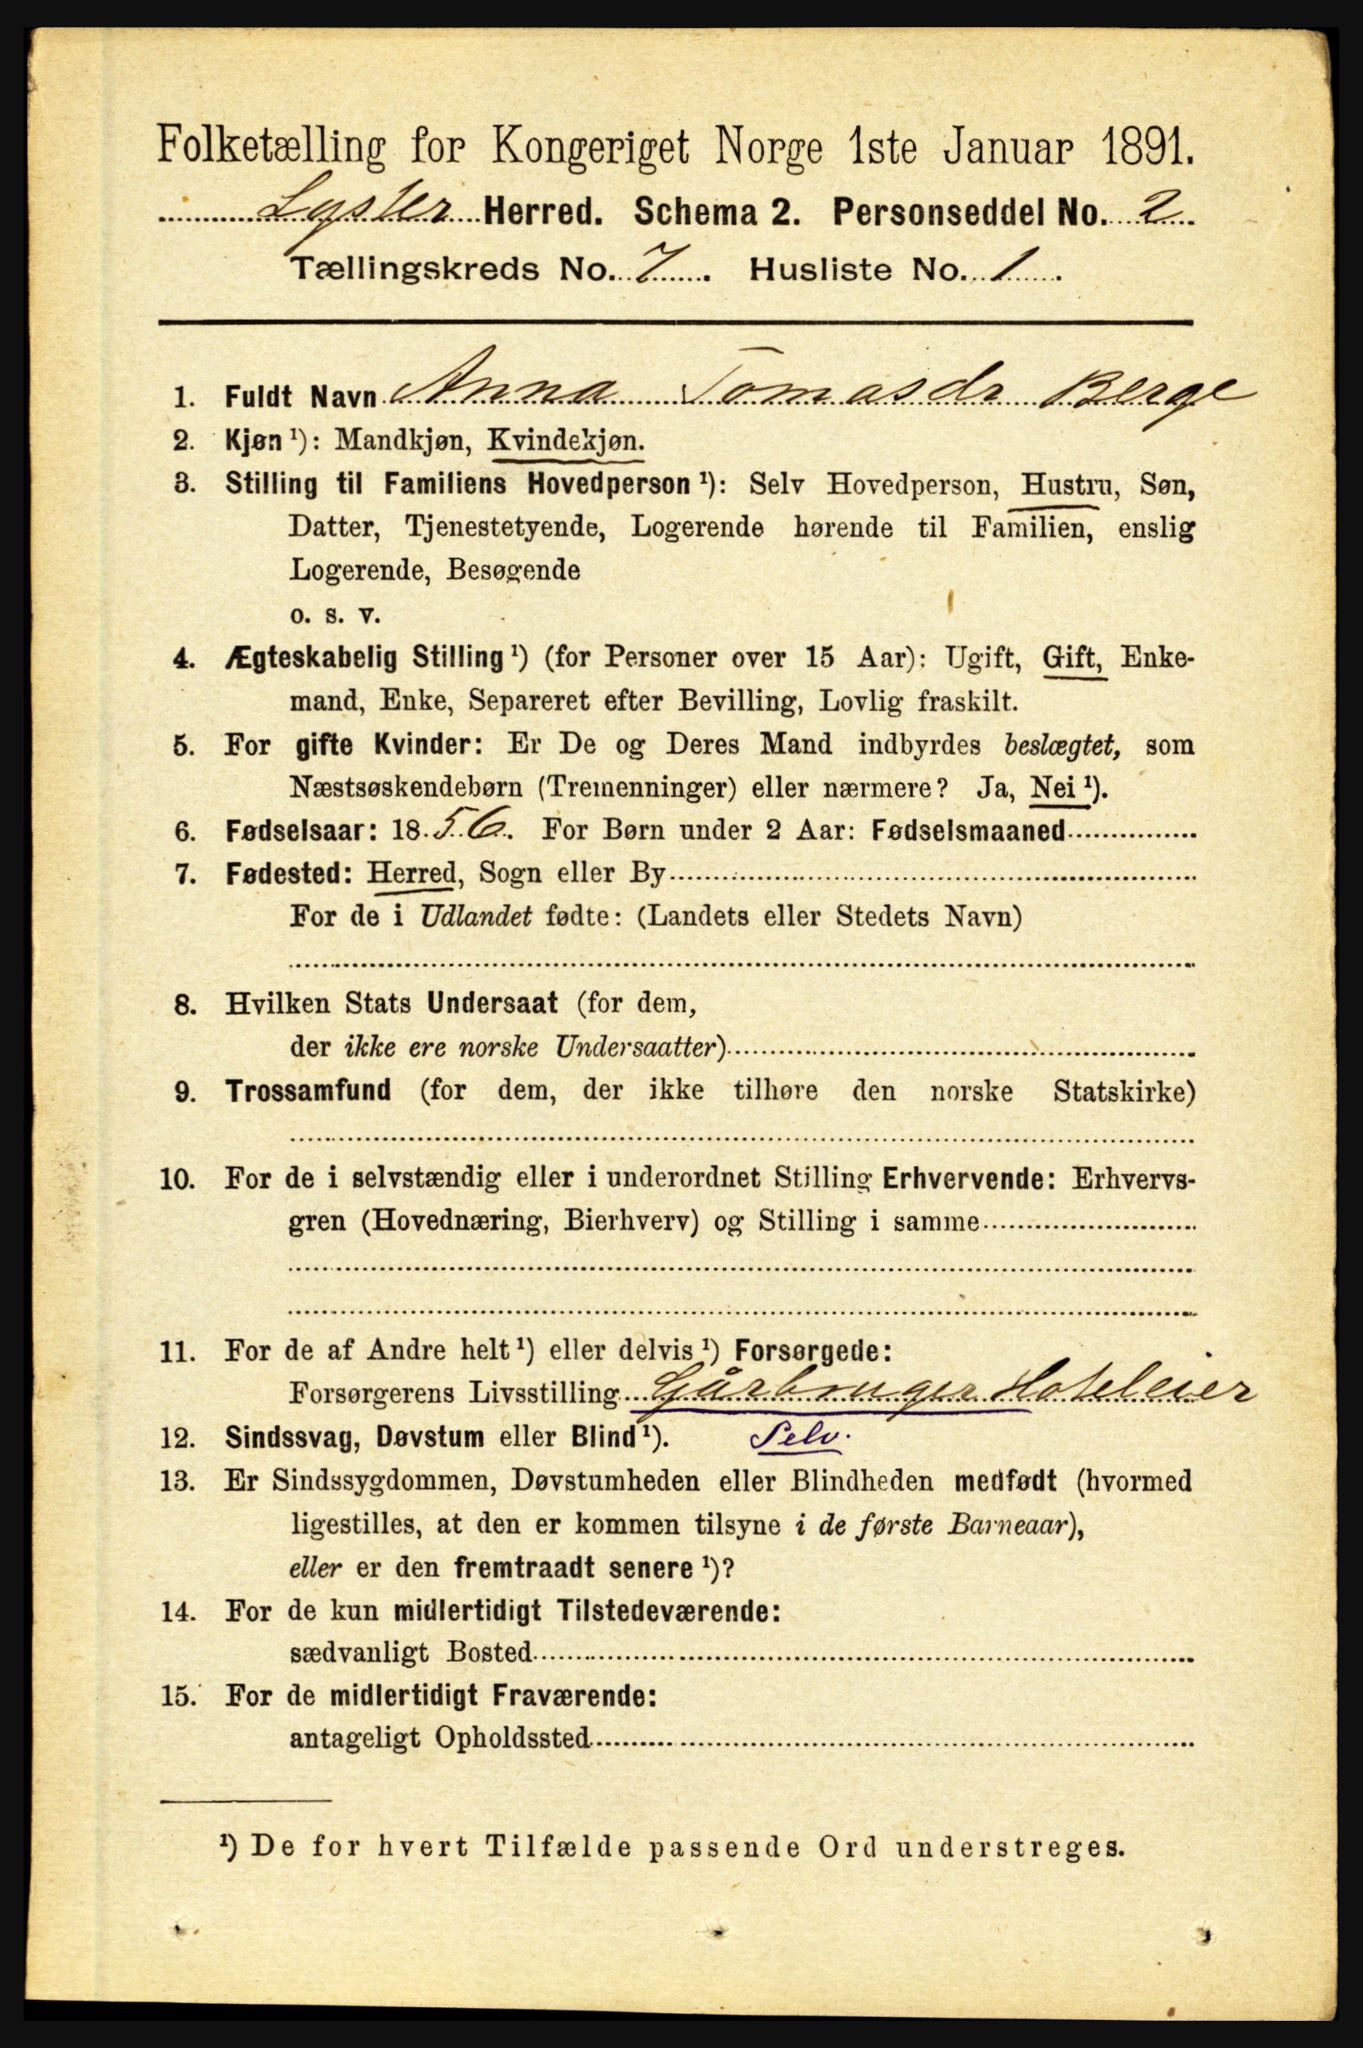 Folketælling for Kongeriget Norge 1ste Januar 1891.
Lyster Herred. Schema 2. Personseddel No. 2
Tællingskreds No. 7. Husliste No. 1.
1. Fuldt Navn Anna Tomasdr Berge
2. Kjøn ¹): Mandkjøn, Kvindekjøn.
3. Stilling til Familiens Hovedperson ¹): Selv Hovedperson, Hustru, Søn,
Datter, Tjenestetyende, Logerende hørende til Familien, enslig
Logerende, Besøgende
o. s. v.
4. Ægteskabelig Stilling ¹) (for Personer over 15 Aar): Ugift, Gift, Enke-
mand, Enke, Separeret efter Bevilling, Lovlig fraskilt.
5. For gifte Kvinder: Er De og Deres Mand indbyrdes beslægtet, som
Næstsøskendebørn (Tremenninger) eller nærmere? Ja, Nei ¹).
6. Fødselsaar: 1856. For Børn under 2 Aar: Fødselsmaaned
7. Fødested: Herred, Sogn eller By
For de i Udlandet fødte: (Landets eller Stedets Navn)
8. Hvilken Stats Undersaat (for dem,
der ikke ere norske Undersaatter)
9. Trossamfund (for dem, der ikke tilhøre den norske Statskirke)
10. For de i selvstændig eller i underordnet Stilling Erhvervende: Erhvervs-
gren (Hovednæring, Bierhverv) og Stilling i samme
11. For de af Andre helt ¹) eller delvis ¹) Forsørgede:
Forsørgerens Livsstilling Gårbruger Hoteleier
12. Sindssvag, Døvstum eller Blind ¹). Selv.
13. Er Sindssygdommen, Døvstumheden eller Blindheden medfødt (hvormed
ligestilles, at den er kommen tilsyne i de første Barneaar),
eller er den fremtraadt senere ¹)?
14. For de kun midlertidigt Tilstedeværende:
sædvanligt Bosted
15. For de midlertidigt Fraværende:
antageligt Opholdssted
¹) De for hvert Tilfælde passende Ord understreges.